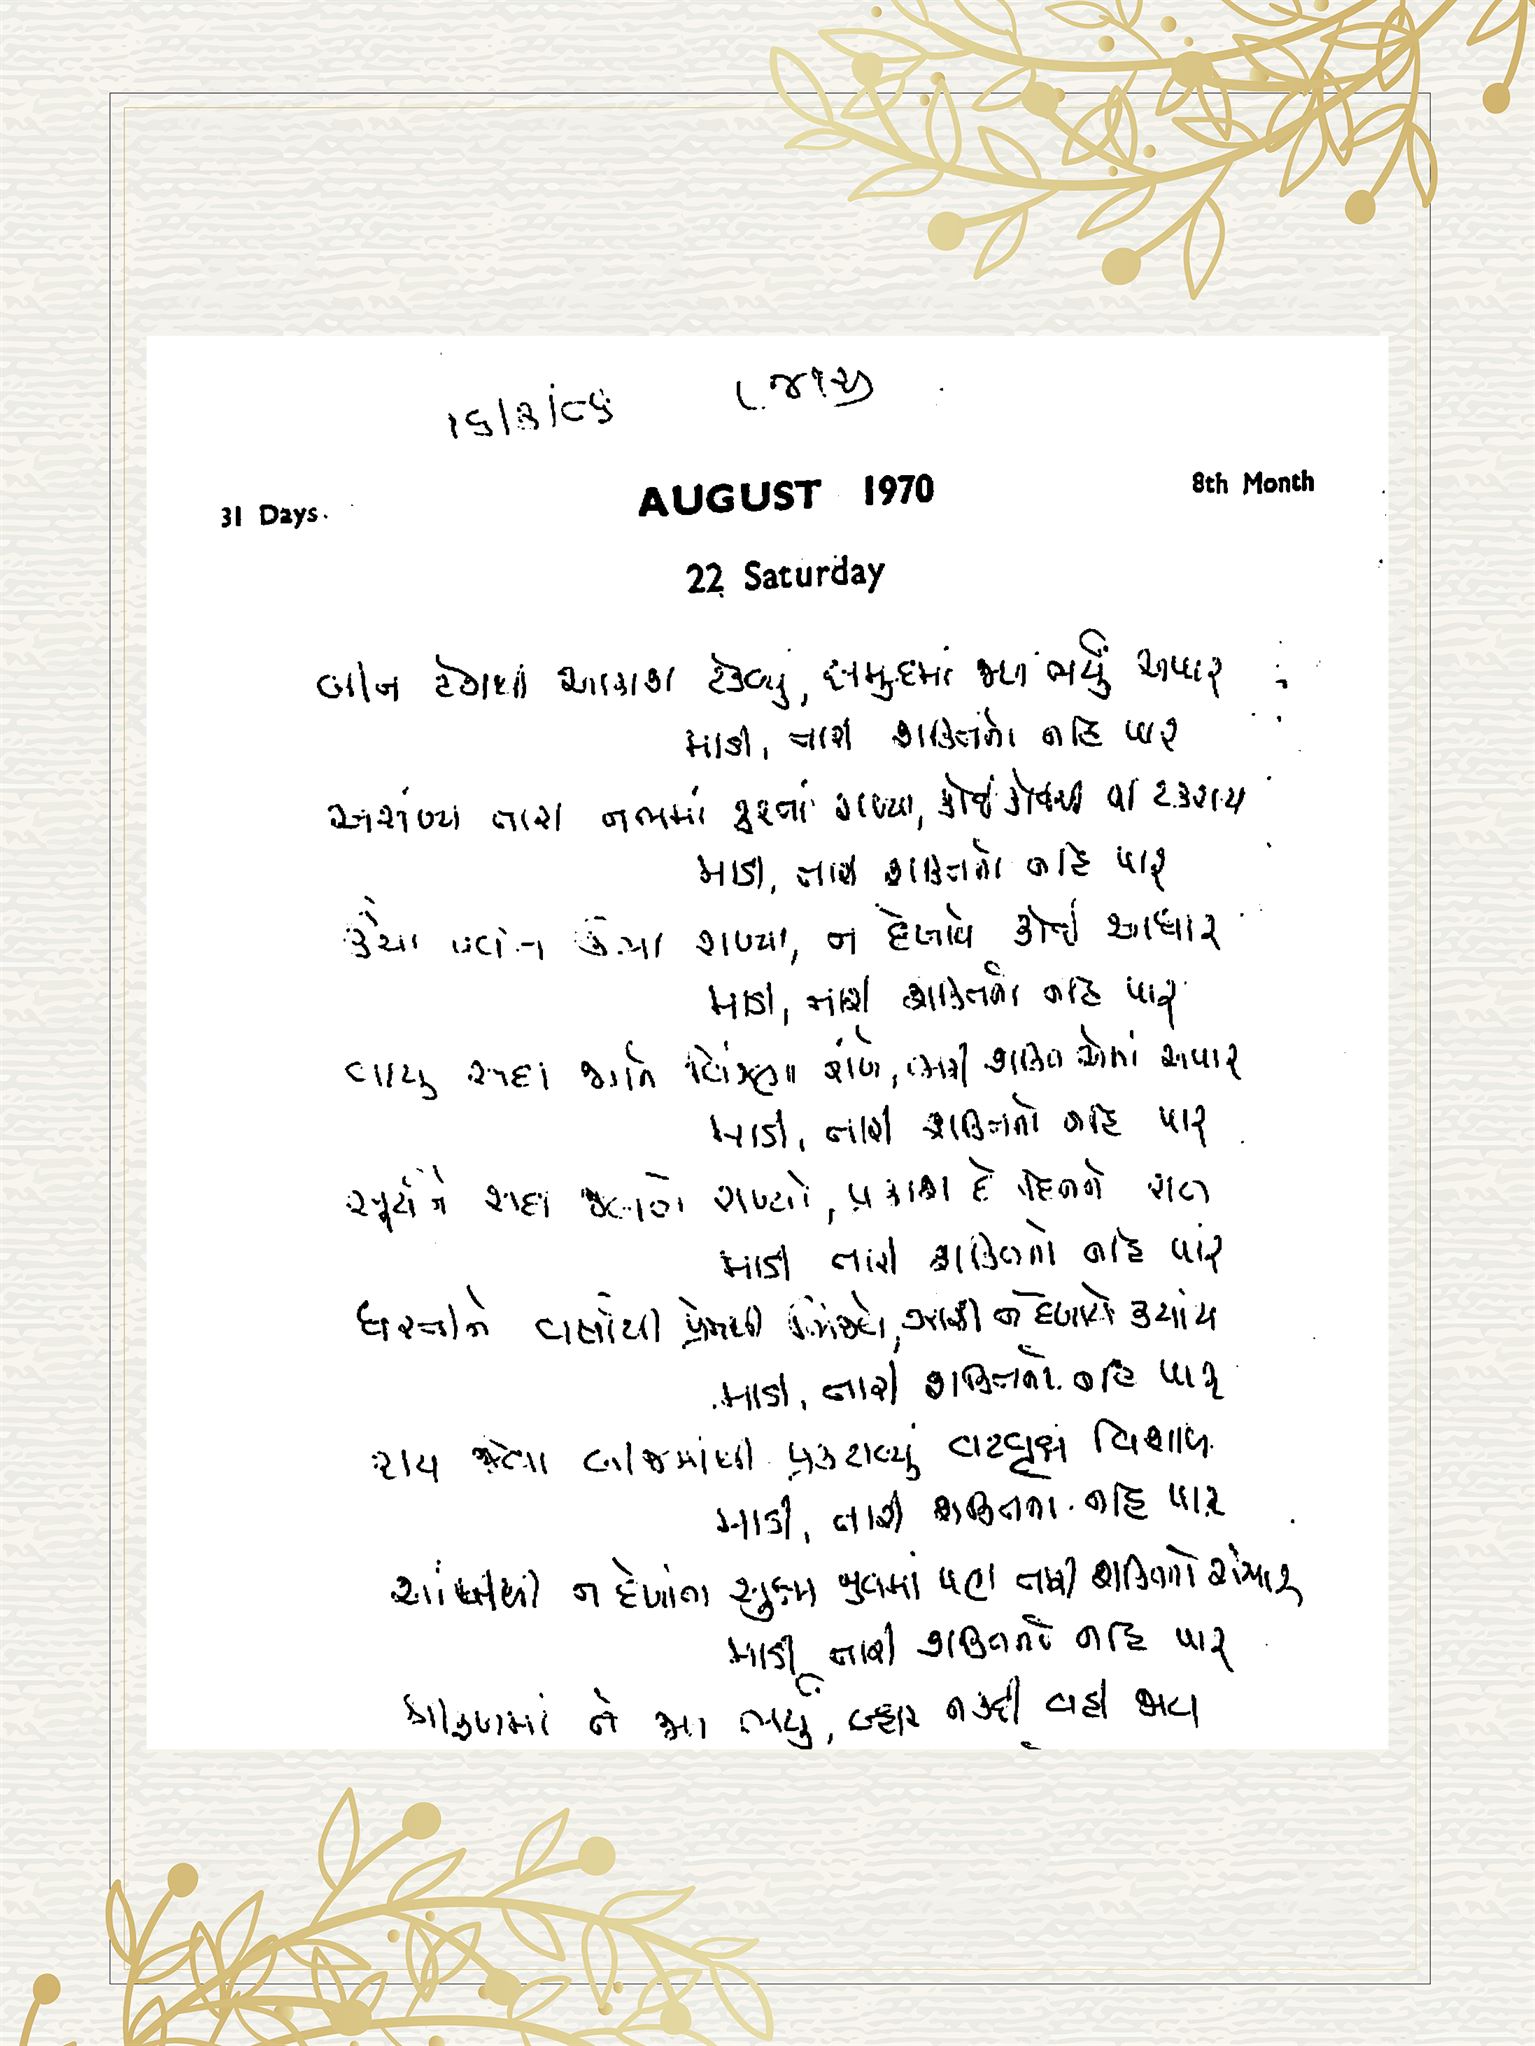 ૧૬/૩/૮૬
31 Days.
AUGUST 1970
8th Month
22 Saturday
બીન ટેકાથી આકાશ ટેકવ્યું, સમુદ્રમાં જળ ભર્યું અપાર
માડી, તારી શક્તિનો નહિ પાર
અસંખ્ય તારા નભમાં ફરતાં રાખ્યા, કોઈ કોઈથી ના ટકરાય
માડી, તારી શક્તિનો નહિ પાર
ઊંચા પર્વત ઊંચા રાખ્યા, ન દેખાયે કોઈ આધાર
માડી, તારી શક્તિનો નહિ પાર
વાયુ સદા જગને વિંઝણા નાંખે, ભરી શક્તિ એમાં અપાર
માડી, તારી શક્તિનો નહિ પાર
સૂર્યને સદા જલતો રાખ્યો, પ્રકાશ દે દિનને રાત
માડી તારી શક્તિનો નહિ પાર
ધરતીને વર્ષાથી પ્રેમથી સિંચે, ઝારી ન દેખાયે ક્યાંય
માડી, તારી શક્તિનો નહિ પાર
રાય જેવા બીજમાંથી પ્રકટાવ્યું વટવૃક્ષ વિશાળ
માડી, તારી શક્તિનો નહિ પાર
આંખેથી ન દેખાતા સુક્ષ્મ જીવમાં પણ તારી શક્તિનો સંચાર
માડી તારી શક્તિનો નહિ પાર
શ્રીફળમાં તેં જળ ભર્યું, બહાર નક્કી વહી જાય